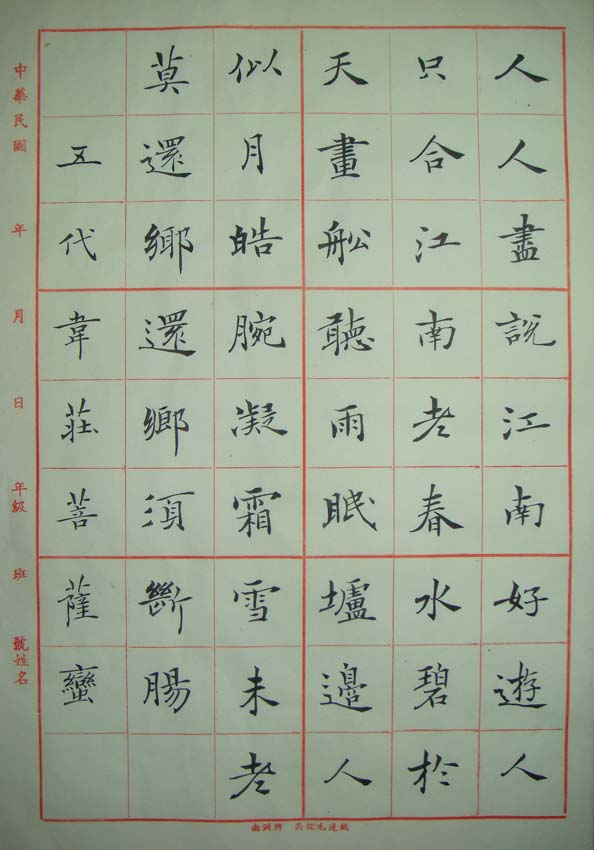 人人盡說江南好遊人
只合江南老春水碧於
天畫舩聽雨眠壚邊人
似月皓腕凝霜雪未老
莫還鄉還鄉湏斷腸
五代韋莊菩薩蠻
中華民國 年 月 日 年級 班 號姓名
南洲牌 高級毛邊紙